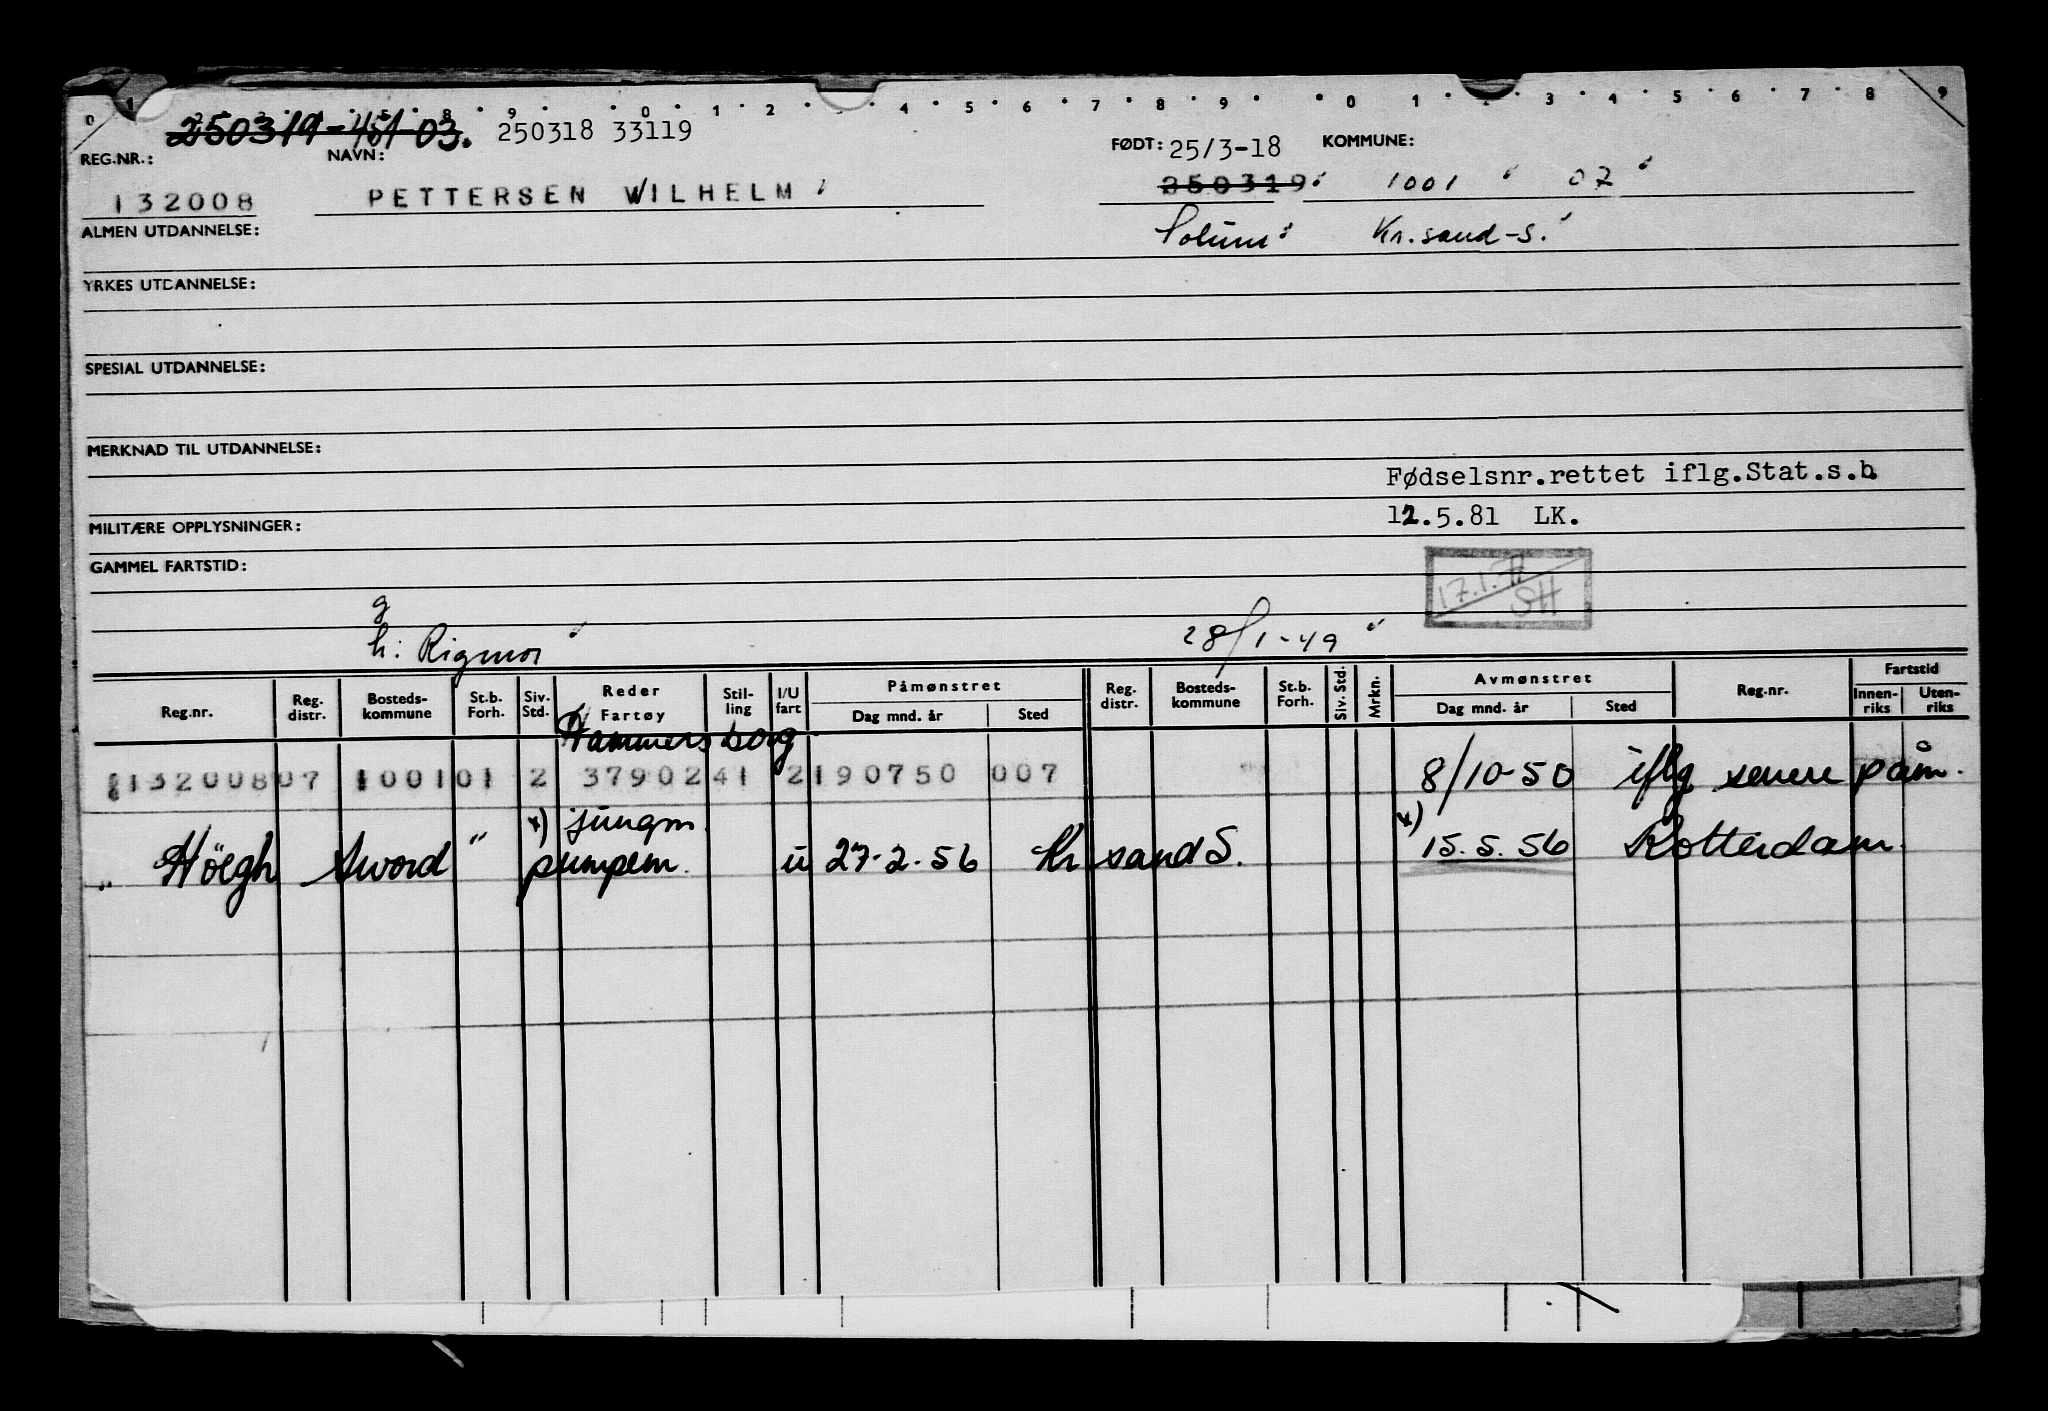 0 1 2 3 5 8 9 0 1 2 4 5 6 7 8 9 0 1 2 3 4 5 6 7 8 9
250319-451-03. 250318 33119
REG.NR.: NAVN: FØDT: 25/3-18 KOMMUNE:
132008 PETTERSEN WILHELM 250319 1001 07
ALMEN UTDANNELSE: Solum Kr.sand-S.
YRKES UTDANNELSE:
SPESIAL UTDANNELSE:
MERKNAD TIL UTDANNELSE:
Fødselsnr.rettet iflg.Stat.s.b.
MILITÆRE OPPLYSNINGER: 12.5.81 LK.
GAMMEL FARTSTID:
17.1.77
SH
g
h: Rigmor 28/1-49
Reg.nr. Reg. distr. Bosteds-kommune St.b. Forh. Siv. Std. Reder Fartøy Stil-ling I/U fart Påmønstret Dag mnd. år Sted Reg. distr. Bosteds-kommune St.b. Forh. Siv. Std. Mrkn. Avmønstret Dag mnd. år Sted Reg.nr. Fartstid Innen-riks Uten-riks
Hammersborg
132008 07 1001 01 2 37902 41 2 190750 007 8/10-50 iflg senere påm.
x) jungm x)
" Höegh Sword " pumpem. u 27.2.56 Kr sand S. 15.5.56 Rotterdam.